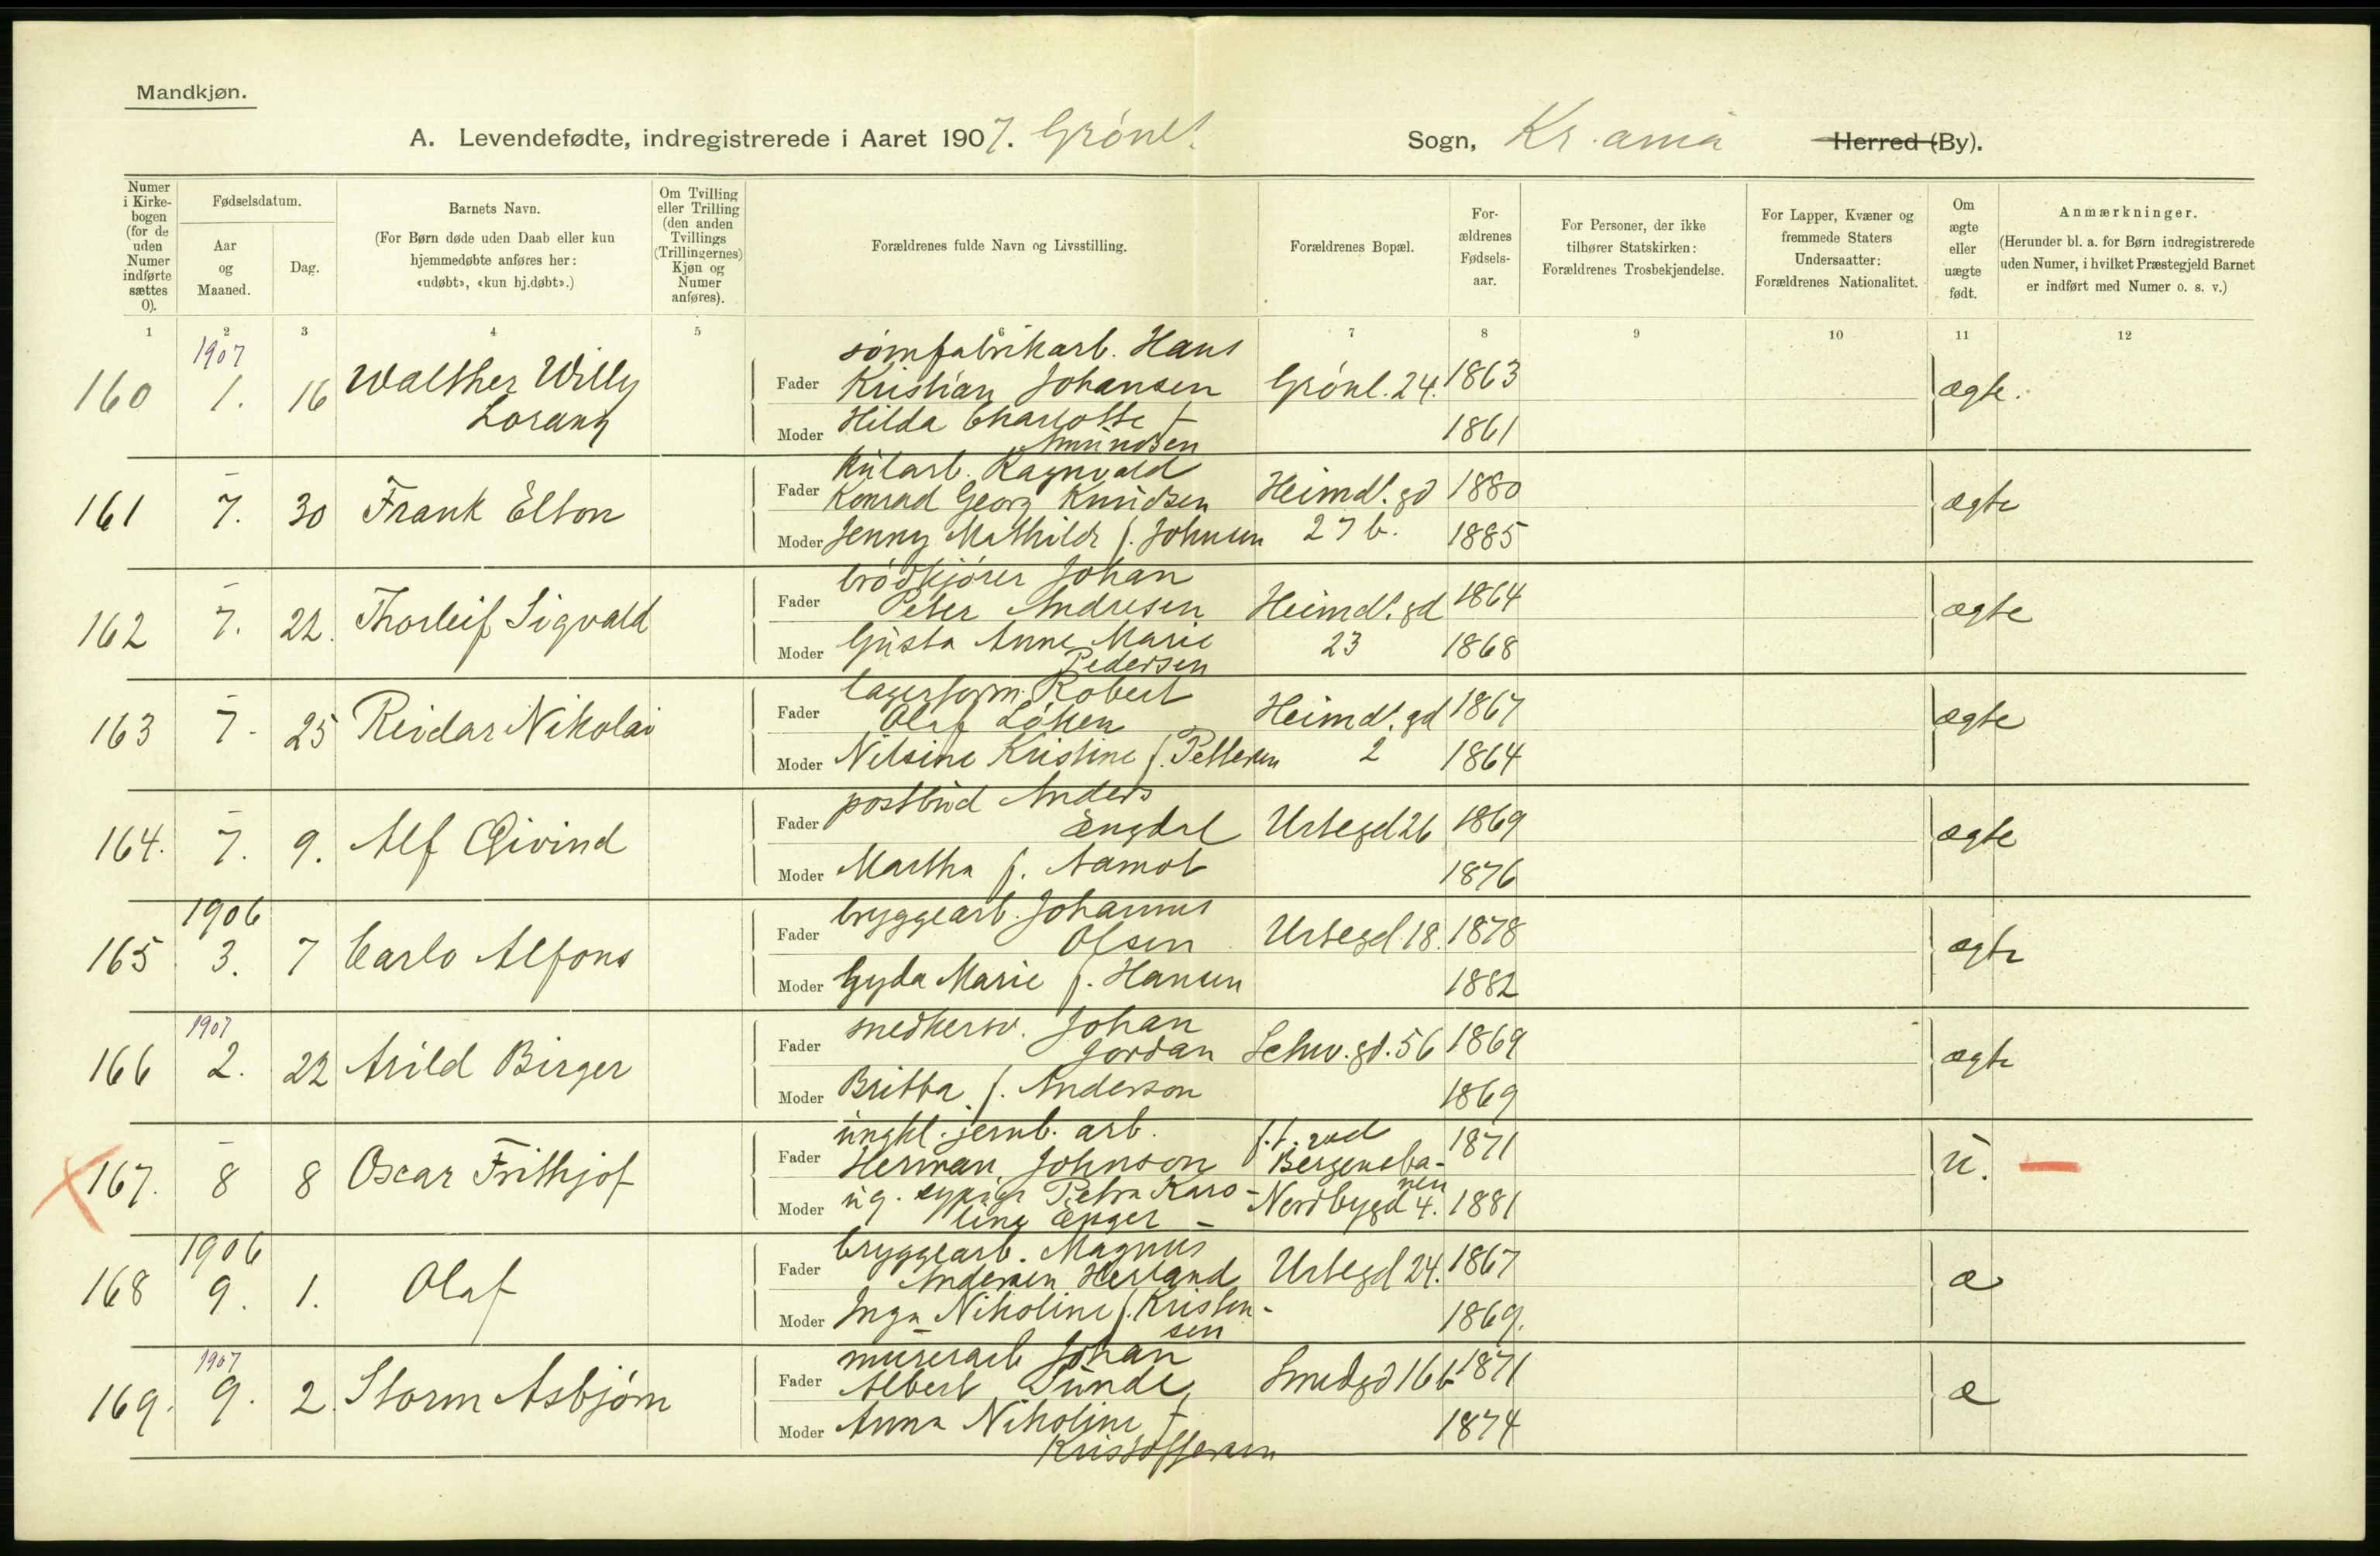 Mandkjøn.
A. Levendefødte, indregistrerede i Aaret 1907. Grønl. Sogn, Kr.ania Herred (By).
Numer i Kirkebogen (for de uden Numer indførte sættes 0).
Fødselsdatum.
Aar og Maaned.
Dag.
Barnets Navn.
(For Børn døde uden Daab eller kun hjemmedøbte anføres her: «udøbt», «kun hj.døbt».)
Om Tvilling eller Trilling (den anden Tvillings (Trillingernes) Kjøn og Numer anføres).
Forældrenes fulde Navn og Livsstilling.
Forældrenes Bopæl.
Forældrenes Fødselsaar.
For Personer, der ikke tilhører Statskirken: Forældrenes Trosbekjendelse.
For Lapper, Kvæner og fremmede Staters Undersaatter: Forældrenes Nationalitet.
Om ægte eller uægte født.
Anmærkninger.
(Herunder bl. a. for Børn indregistrerede uden Numer, i hvilket Præstegjeld Barnet er indført med Numer o. s. v.)
1 2 3 4 5 6 7 8 9 10 11 12
1907
sømfabrikarb. Hans
160 1. 16 Walther Willy Fader Kristian Johansen Grønl. 24. 1863 ægte.
Lorang Moder Hilda Charlotte f. 1861
Amundsen
–
Fader Rularb. Ragnvald
161 7. 30 Frank Elton Konrad Georg Knudsen Heimd'. gd 1880 ægte
Moder Jenny Mathilde f. Johnsen 27 b. 1885
–
brødkjører Johan
162 7. 22. Thorleif Sigvald Fader Peter Andresen Heimd'. gd 1864 ægte
Moder Gusta Anne Marie 23 1868
Pedersen
–
lagerform. Robert
163 7. 25 Reidar Nikolai Fader Olaf Løken Heimd'. gd 1867 ægte
Moder Nilsine Kristine f. Pettersen 2 1864
–
postbud Anders
164. 7. 9. Alf Eivind Fader Engdal Urtegd 26 1869 ægte
Moder Martha f. Aamot 1876
1906
bryggearb. Johannes
165 3. 7 Carlo Alfons Fader Olsen Urtegd. 18. 1878 ægte
Moder Gyda Marie f. Hansen 1882
1907
snedkersv. Johan
166 2. 22 Arild Birger Fader Jordan Schw. gd. 56 1869 ægte
Moder Britta f. Anderson 1869
–
ungkl. jernb. arb. f.t. ved
167. 8 8 Oscar Frithjof Fader Herman Johnson Bergensba- 1871 u. –
nen
Moder ug. sypige Petra Karo- Nordbygd 4. 1881
line Enger –
1906
bryggearb. Magnus
168 9. 1. Olaf Fader Andersen Hertand Urtegd 24. 1867 æ
Moder Inga Nikoline f. Kristen- 1869.
sen
1907
murerarb Johan
169. 9. 2. Storm Asbjørn Fader Albert Sunde Smedgd 16 b 1871 æ
Moder Anna Nikoline f. 1874
Kristoffersen